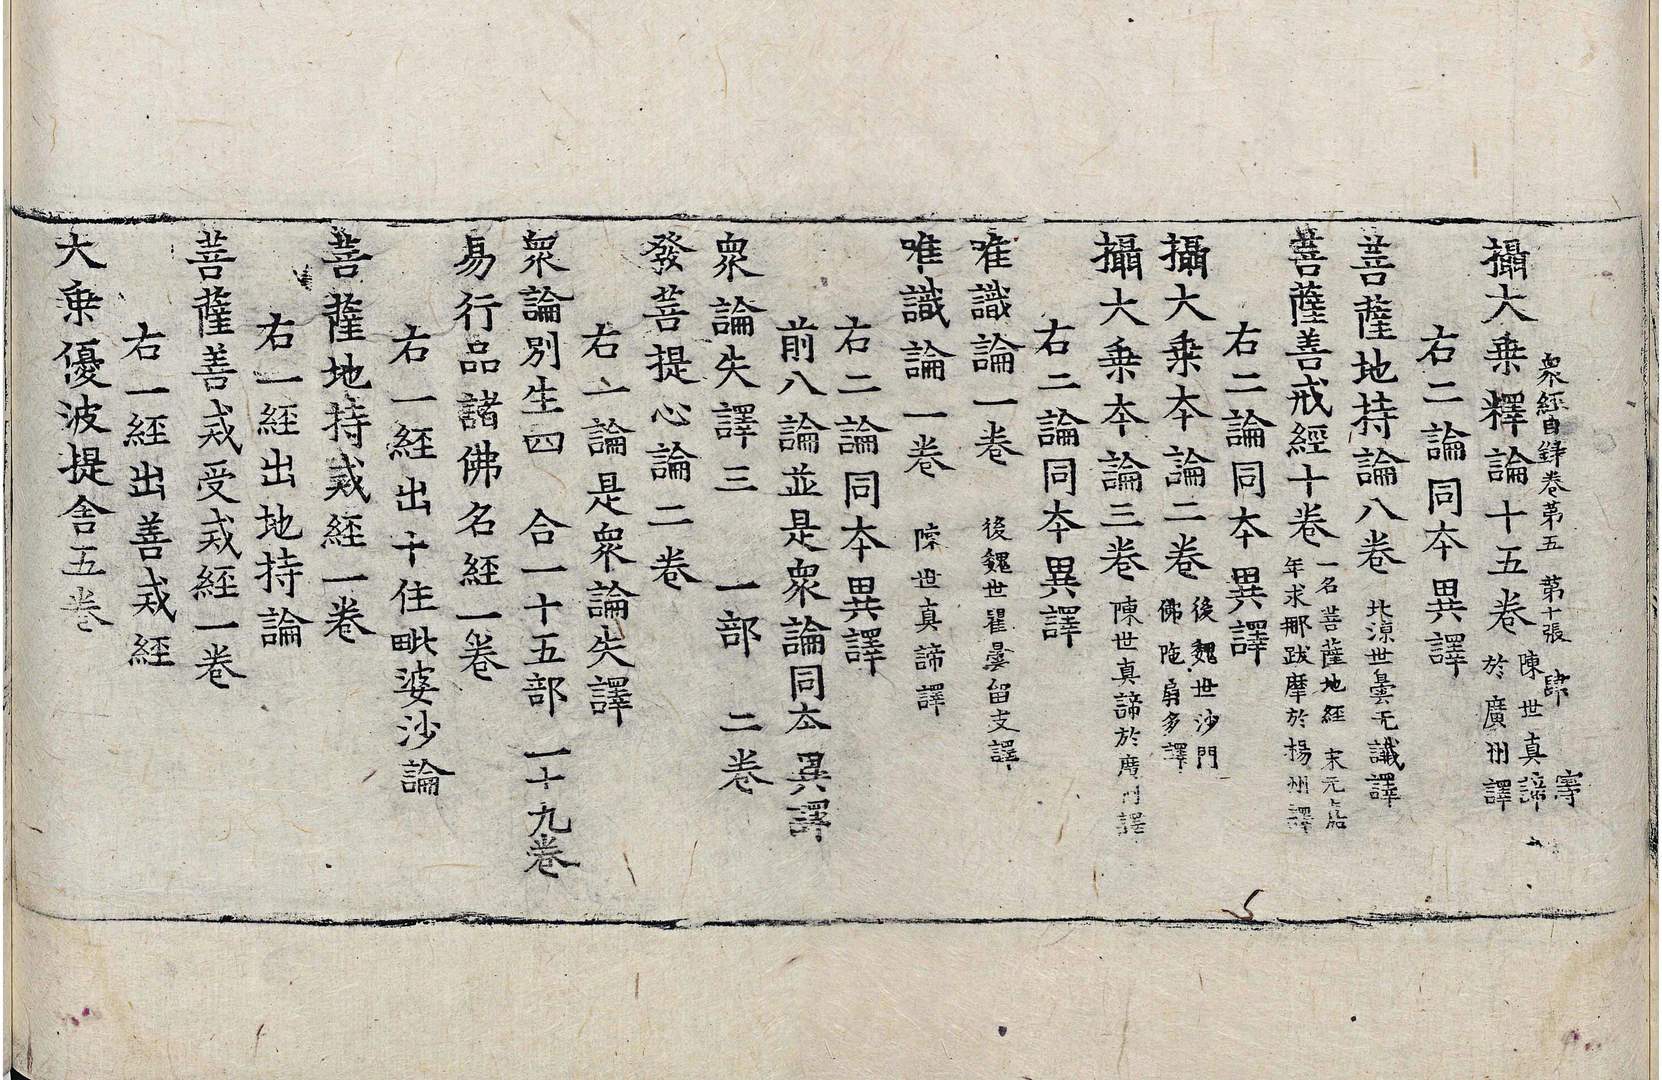 衆經目錄卷第五　第十張　肆　寫
攝大乗釋論十五卷　陳世真諦於廣州譯
右二論同本異譯
菩薩地持論八卷　北涼世曇无讖譯
菩薩善戒經十卷　一名菩薩地經　末元嘉年求那跋摩於楊州譯
右二論同本異譯
攝大乗本論二卷　後魏世沙門佛陁扇多譯
攝大乗本論三卷　陳世真諦於廣州譯
右二論同本異譯
唯識論一卷　後魏世瞿曇留支譯
唯識論一卷　陳世真諦譯
右二論同本異譯
前八論並是衆論同本異譯
衆論失譯三　一部　二卷
發菩提心論二卷
右一論是衆論失譯
衆論別生四　合一十五部　一十九卷
易行品諸佛名經一卷
右一經出十住毗婆沙論
菩薩地持戒經一卷
右一經出地持論
菩薩善戒受戒經一卷
右一經出善戒經
大乗優波提舍五卷